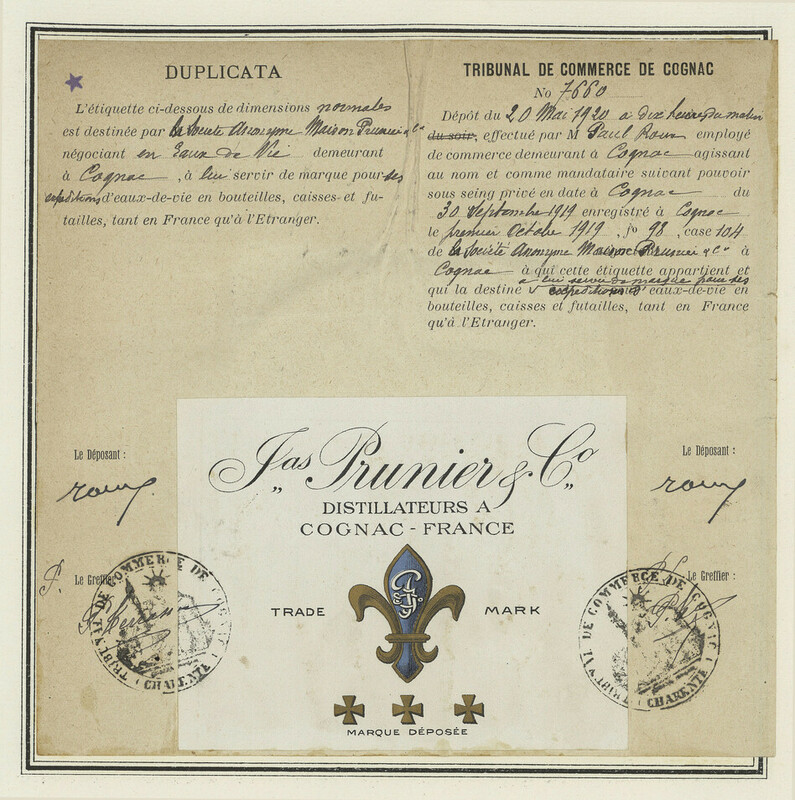 DUPLICATA
L'étiquette ci-dessous de dimensions normales
est destinée par la Société Anonyme Maison Prunier & Cº
négociant en Eaux de Vie demeurant
à Cognac, à lui servir de marque pour ses
expéditions d'eaux-de-vie en bouteilles, caisses et fu-
tailles, tant en France qu'à l'Etranger.
TRIBUNAL DE COMMERCE DE COGNAC
No 7660
Dépôt du 20 Mai 1920 à dix heures du matin
du soir, effectué par M Paul Roux employé
de commerce demeurant à Cognac agissant
au nom et comme mandataire suivant pouvoir
sous seing privé en date à Cognac du
30 Septembre 1919 enregistré à Cognac
le premier Octobre 1919, fº 98, case 104
de la Société Anonyme Maison Prunier & Cº à
Cognac à qui cette étiquette appartient et
à lui servir de marque pour ses
qui la destine expéditions d'eaux-de-vie en
bouteilles, caisses et futailles, tant en France
qu'à l'Etranger.
Le Déposant :
Roux
Le Déposant :
Roux
P. Le Greffier :
Le Greffier :
TRIBUNAL DE COMMERCE DE COGNAC
(CHARENTE)
TRIBUNAL DE COMMERCE DE COGNAC
(CHARENTE)
Jas Prunier & Cº
DISTILLATEURS A
COGNAC - FRANCE
TRADE MARK
MARQUE DÉPOSÉE